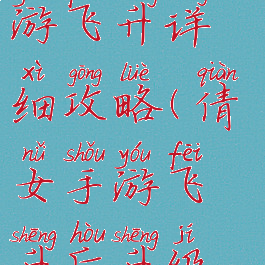 游飞升详
xì gōng lüè qiàn
细攻略(倩
nǚ shǒu yóu fēi
女手游飞
shēng hòu shēng jí
升后升级